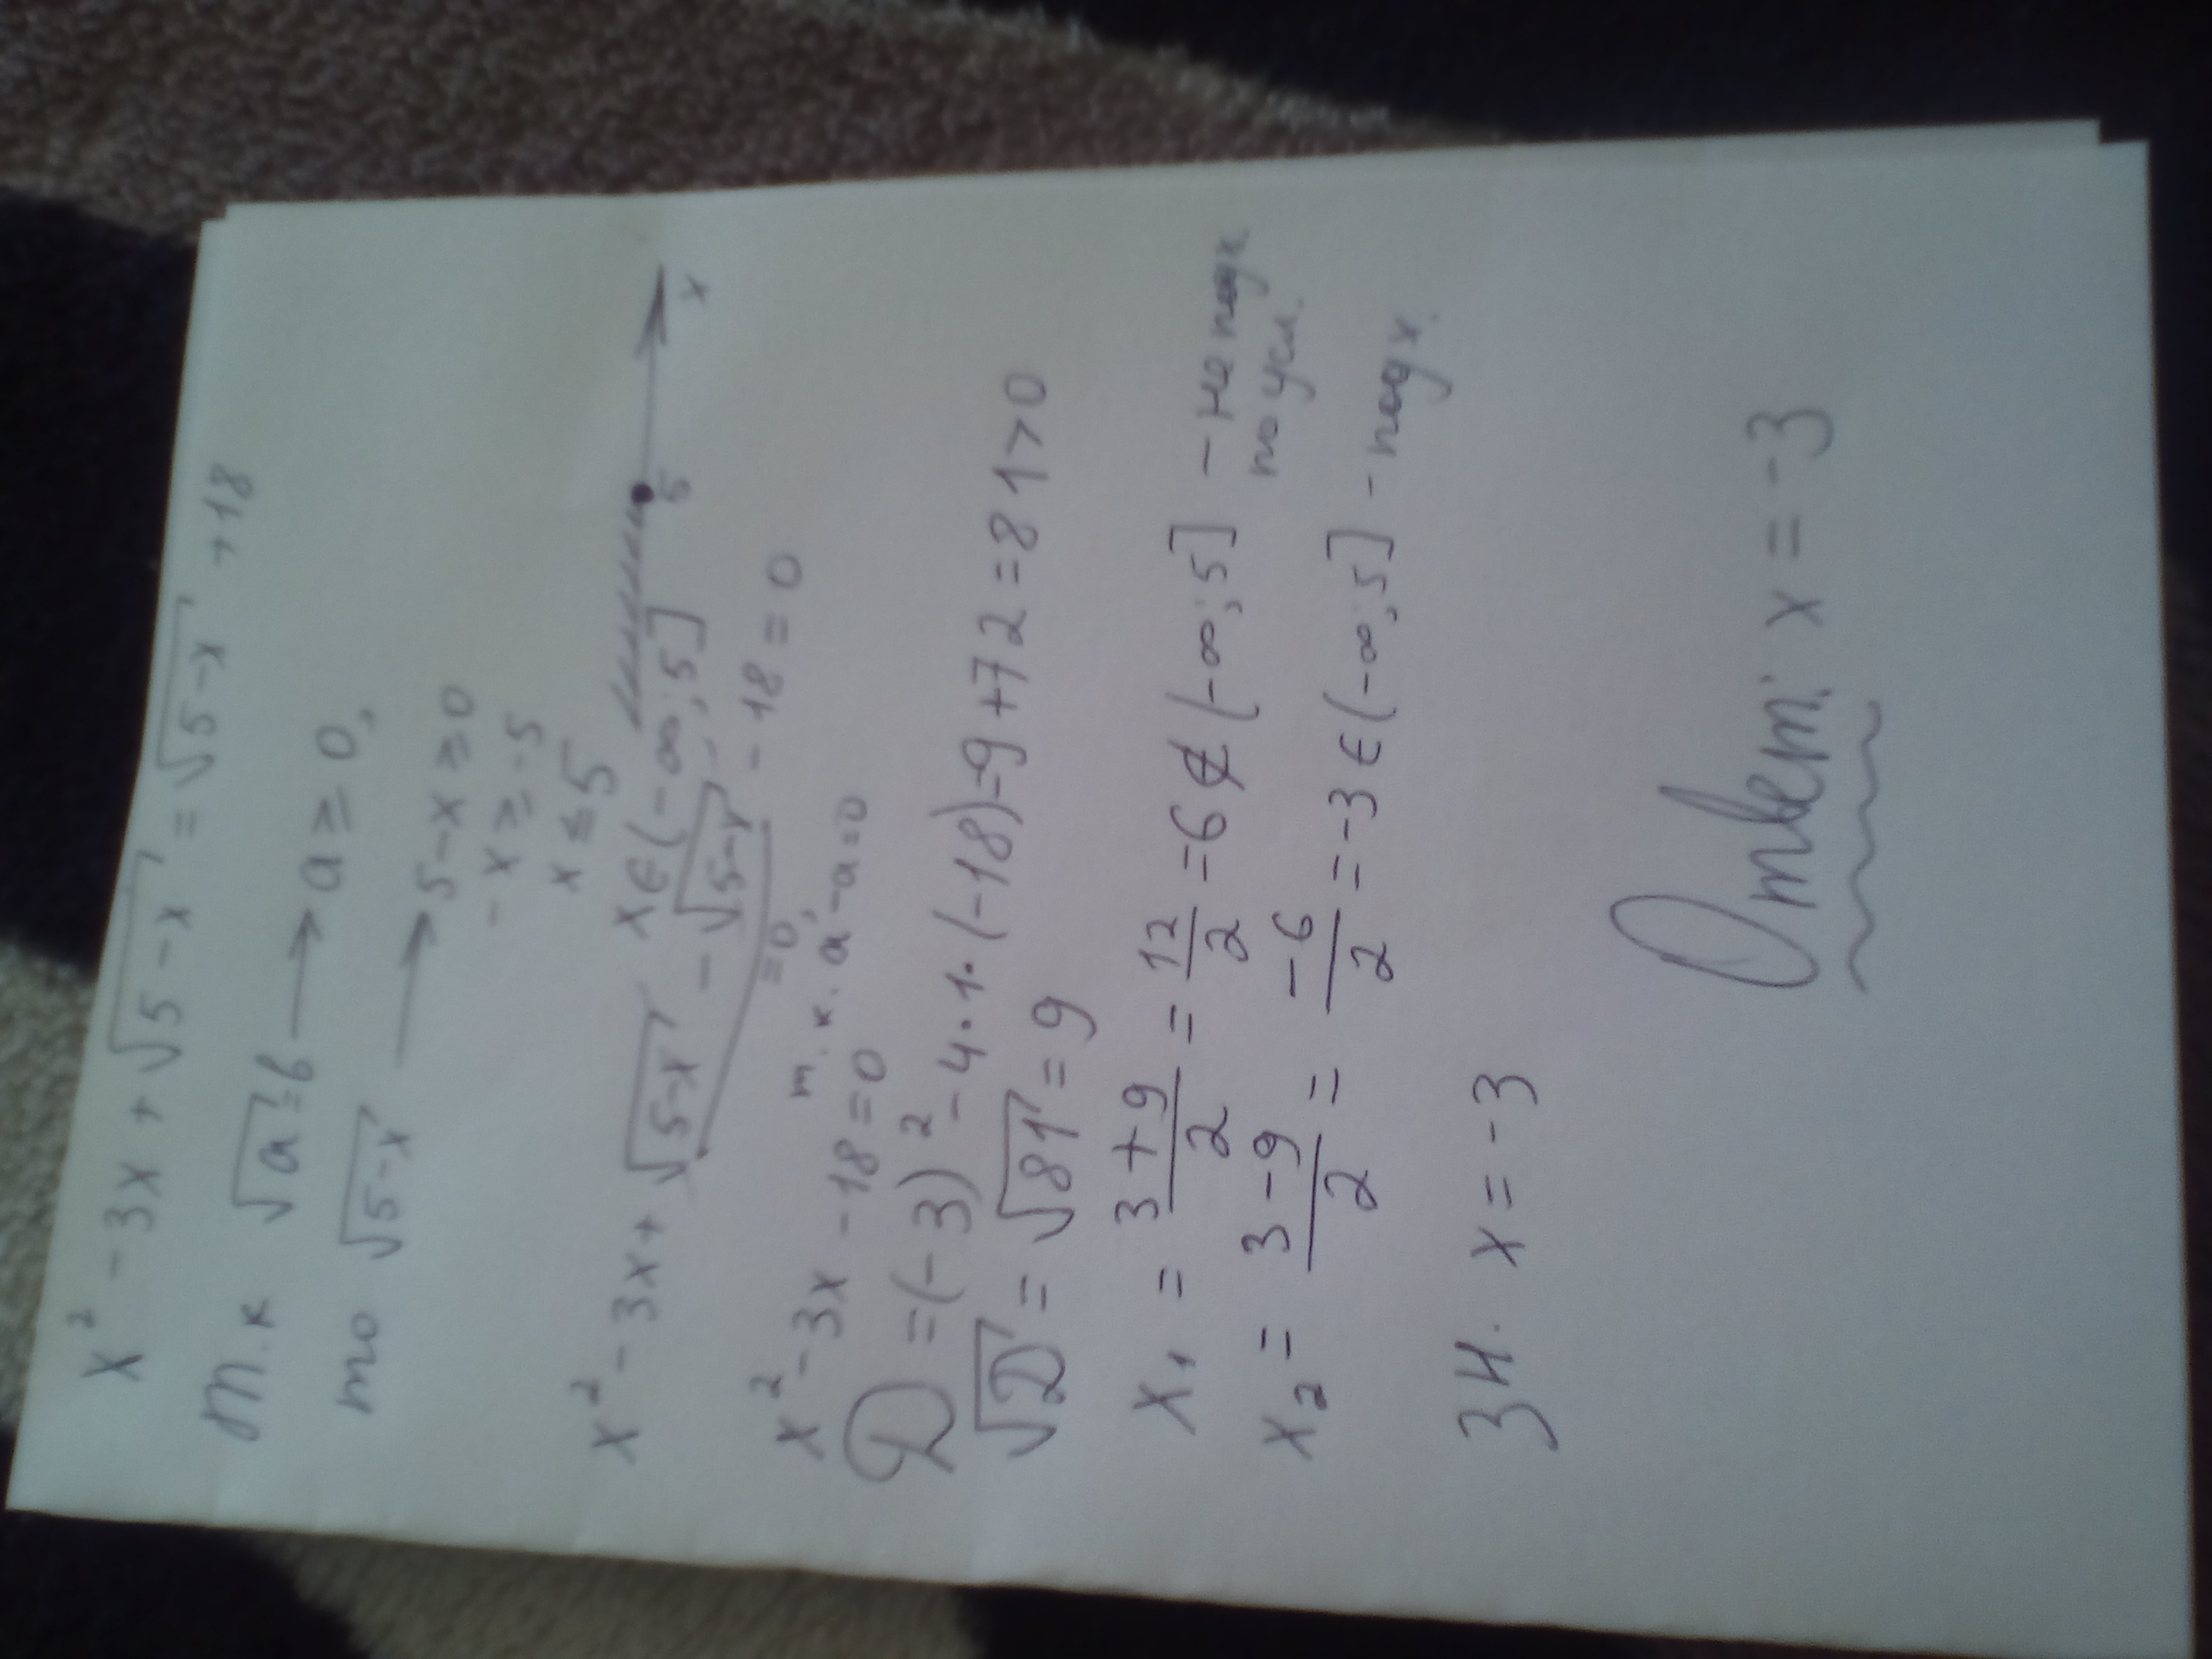 x² - 3x + √5-x = √5-x + 18
т.к √a = b → a ≥ 0,
то √5-x → 5-x ≥ 0
-x ≥ -5
x ≤ 5
5 x
x ∈ (-∞; 5]
x² - 3x + √5-x - √5-x - 18 = 0
= 0,
т.к. a - a = 0
x² - 3x - 18 = 0
D = (-3)² - 4·1·(-18) = 9 + 72 = 81 > 0
√D = √81 = 9
x₁ = 3+9/2 = 12/2 = 6 ∉ (-∞; 5] - не подх
по усл.
x₂ = 3-9/2 = -6/2 = -3 ∈ (-∞; 5] - подх.
Зн. x = -3
Ответ: x = -3